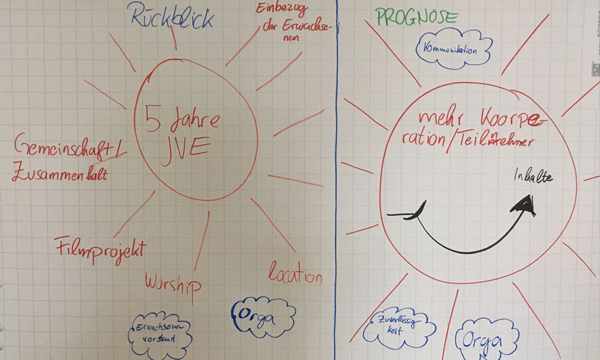 Rückblick
Einbezug
der Erwachse-
nen
5 Jahre
JVE
Gemeinschaft/
Zusammenhalt
Filmprojekt
Worship
Location
Erwachsenen
vorstand
Orga
PROGNOSE
Kommunikation
mehr Koorpe-
ration/Teilnehmer
Inhalte
Zuverlässig
keit
Orga